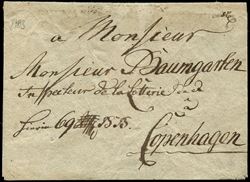 a Monsieur
Monsieur Baumgarten
Inspecteur de la Lotterie
Copenhagen